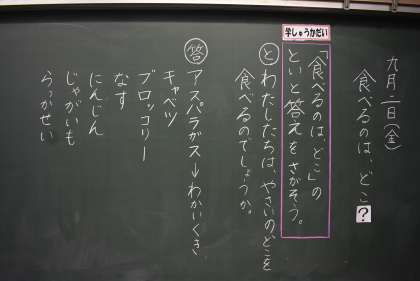 九月一日(金)
食べるのは、どこ?
学しゅうかだい
「食べるのは、どこ」の
といと答えをさがそう。
とわたしたちは、やさいのどこを
食べるのでしょうか。
答アスパラガス→わかいくき
キャベツ
ブロッコリー
なす
にんじん
じゃがいも
らっかせい